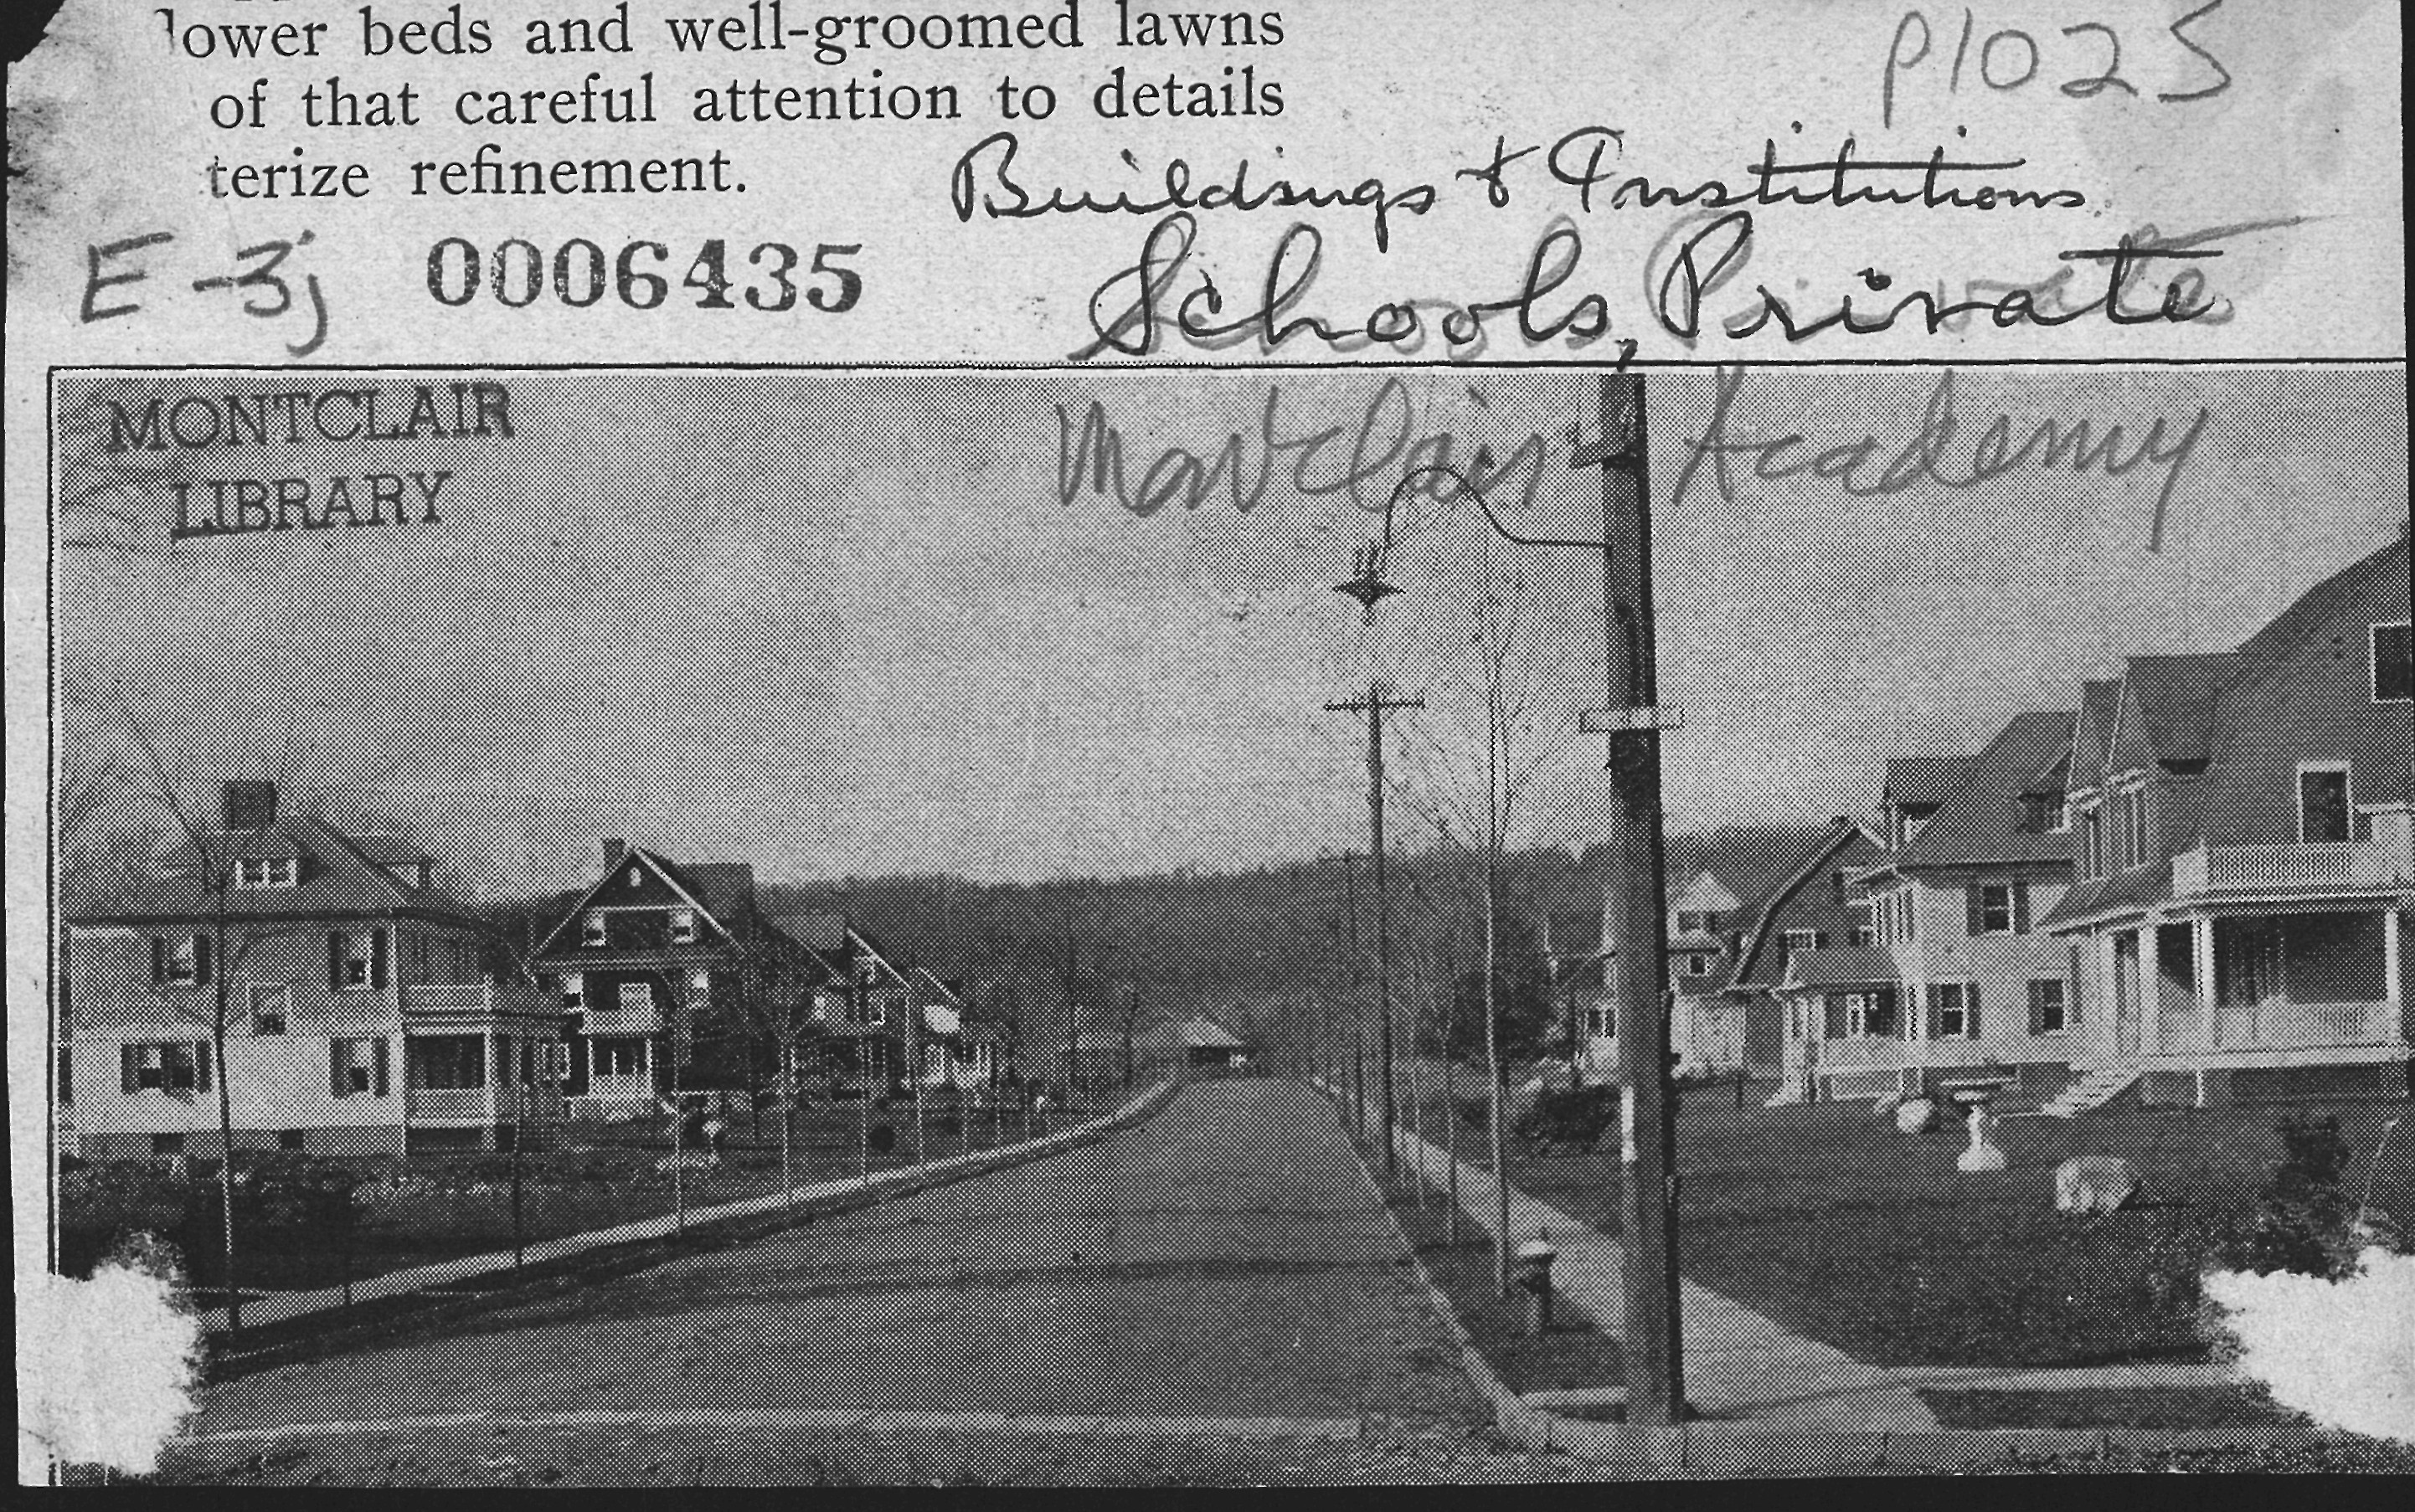 lower beds and well-groomed lawns
of that careful attention to details
terize refinement.
P1025
Buildings & Institutions
E-3j 0006435
Schools, Private
MONTCLAIR
LIBRARY
Montclair Academy